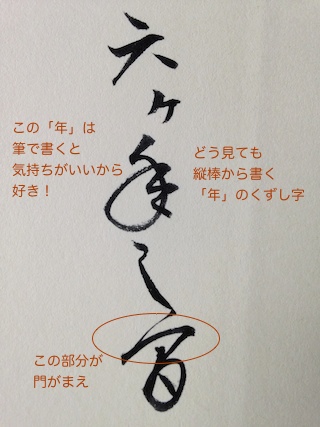 六ヶ年之間
この「年」は
筆で書くと
気持ちがいいから
好き！
どう見ても
縦棒から書く
「年」のくずし字
この部分が
門がまえ